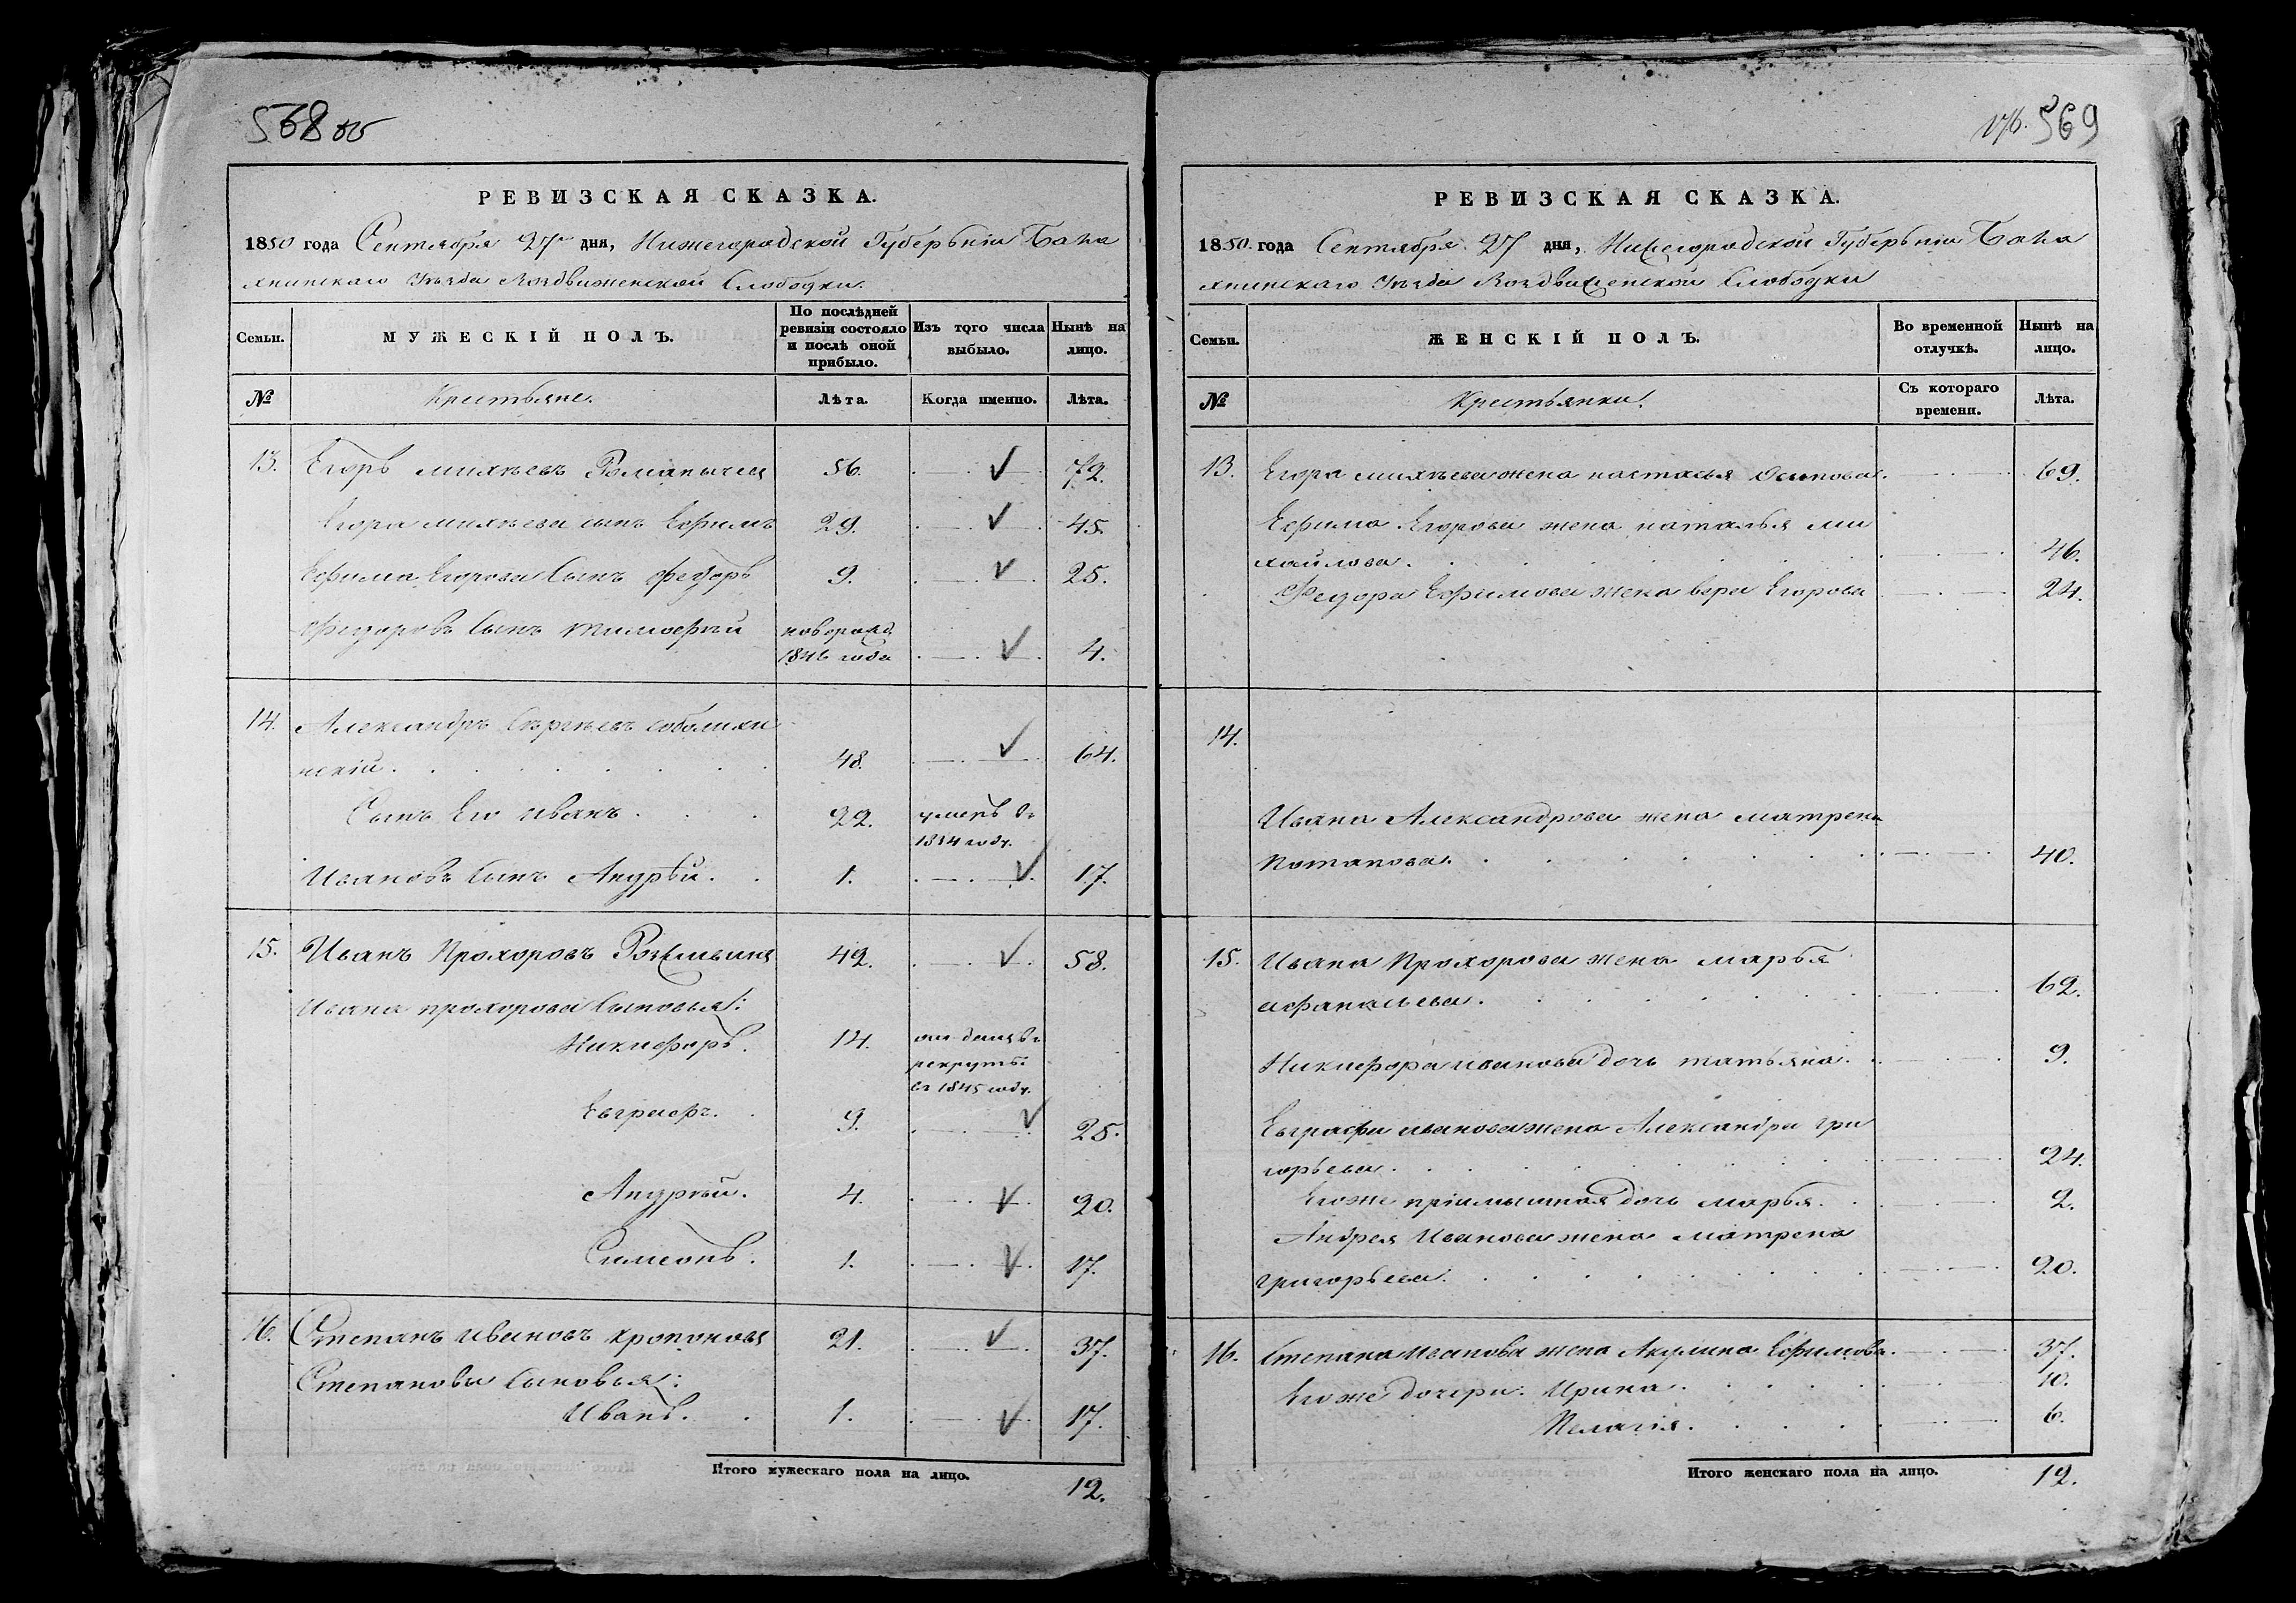 568 об
РЕВИЗСКАЯ СКАЗКА.
1850 года Сентября 27 дня, Нижегородской Губерьнiи Бала
хнинскаго Уѣзда Воздвиженской Слободки.
Семьи.
МУЖЕСКІЙ ПОЛЪ.
По послѣдней
ревизіи состояло
и послѣ оной
прибыло.
Изъ того числа
выбыло.
Нынѣ на
лицо.
№
Крестьяне.
Лѣта.
Когда именно.
Лѣта.
13. Егоръ михѣевъ 56. 72.
Егора михѣева сынъ Ефимъ 29. 45.
Ефима Егорова Сынъ федоръ 9. 25.
Федоровъ Сынъ тимофѣй новорожд. 4.
1846 года
14. Александръ Сѣргѣевъ
48. 64.
Сынъ Его иванъ. 22. умеръ в
году.
Ивановъ Сынъ Андрѣй. 1. 17.
15. Иванъ Прохоровъ 42. 58.
Ивана прохорова Сыновья:
Никифоръ. 14. отданъ в
рекруты
въ 1845 году.
Евграфъ. 9. 25.
Андрѣй. 4. 20.
Симеонъ. 1. 17.
16. Степанъ ивановъ 21. 37.
Степановы Сыновья:
Иванъ. 1. 17.
Итого мужескаго пола на лицо.
12.
569
РЕВИЗСКАЯ СКАЗКА.
1850. года Сентября 27 дня, Нижегородской Губерьнiи Бала
хнинскаго Уѣзда Воздвиженской Слободки
Семьи.
ЖЕНСКІЙ ПОЛЪ.
Во временной
отлучкѣ.
Нынѣ на
лицо.
№
Крестьянки.
Съ котораго
времени.
Лѣта.
13. Егора михѣева жена настасья Осипова. 69.
Ефима Егорова жена наталья ми
хайлова. 46.
Федора Ефимова жена вера Егорова 24.
14.
Ивана Александрова жена матрена
Потапова. 40.
15. Ивана Прохорова жена марья
афанасьева. 62.
Никифора иванова дочь татьяна. 9.
Евграфа иванова жена Александра гри
горьева. 24.
Егоже пріимышная дочь марья. 2.
Андрея Иванова жена матрена
григорьева. 20.
16. Степана иванова жена Акулина Ефимова. 37.
Егоже дочери: Ирина. 10.
Пелагія. 6.
Итого женскаго пола на лицо.
12.